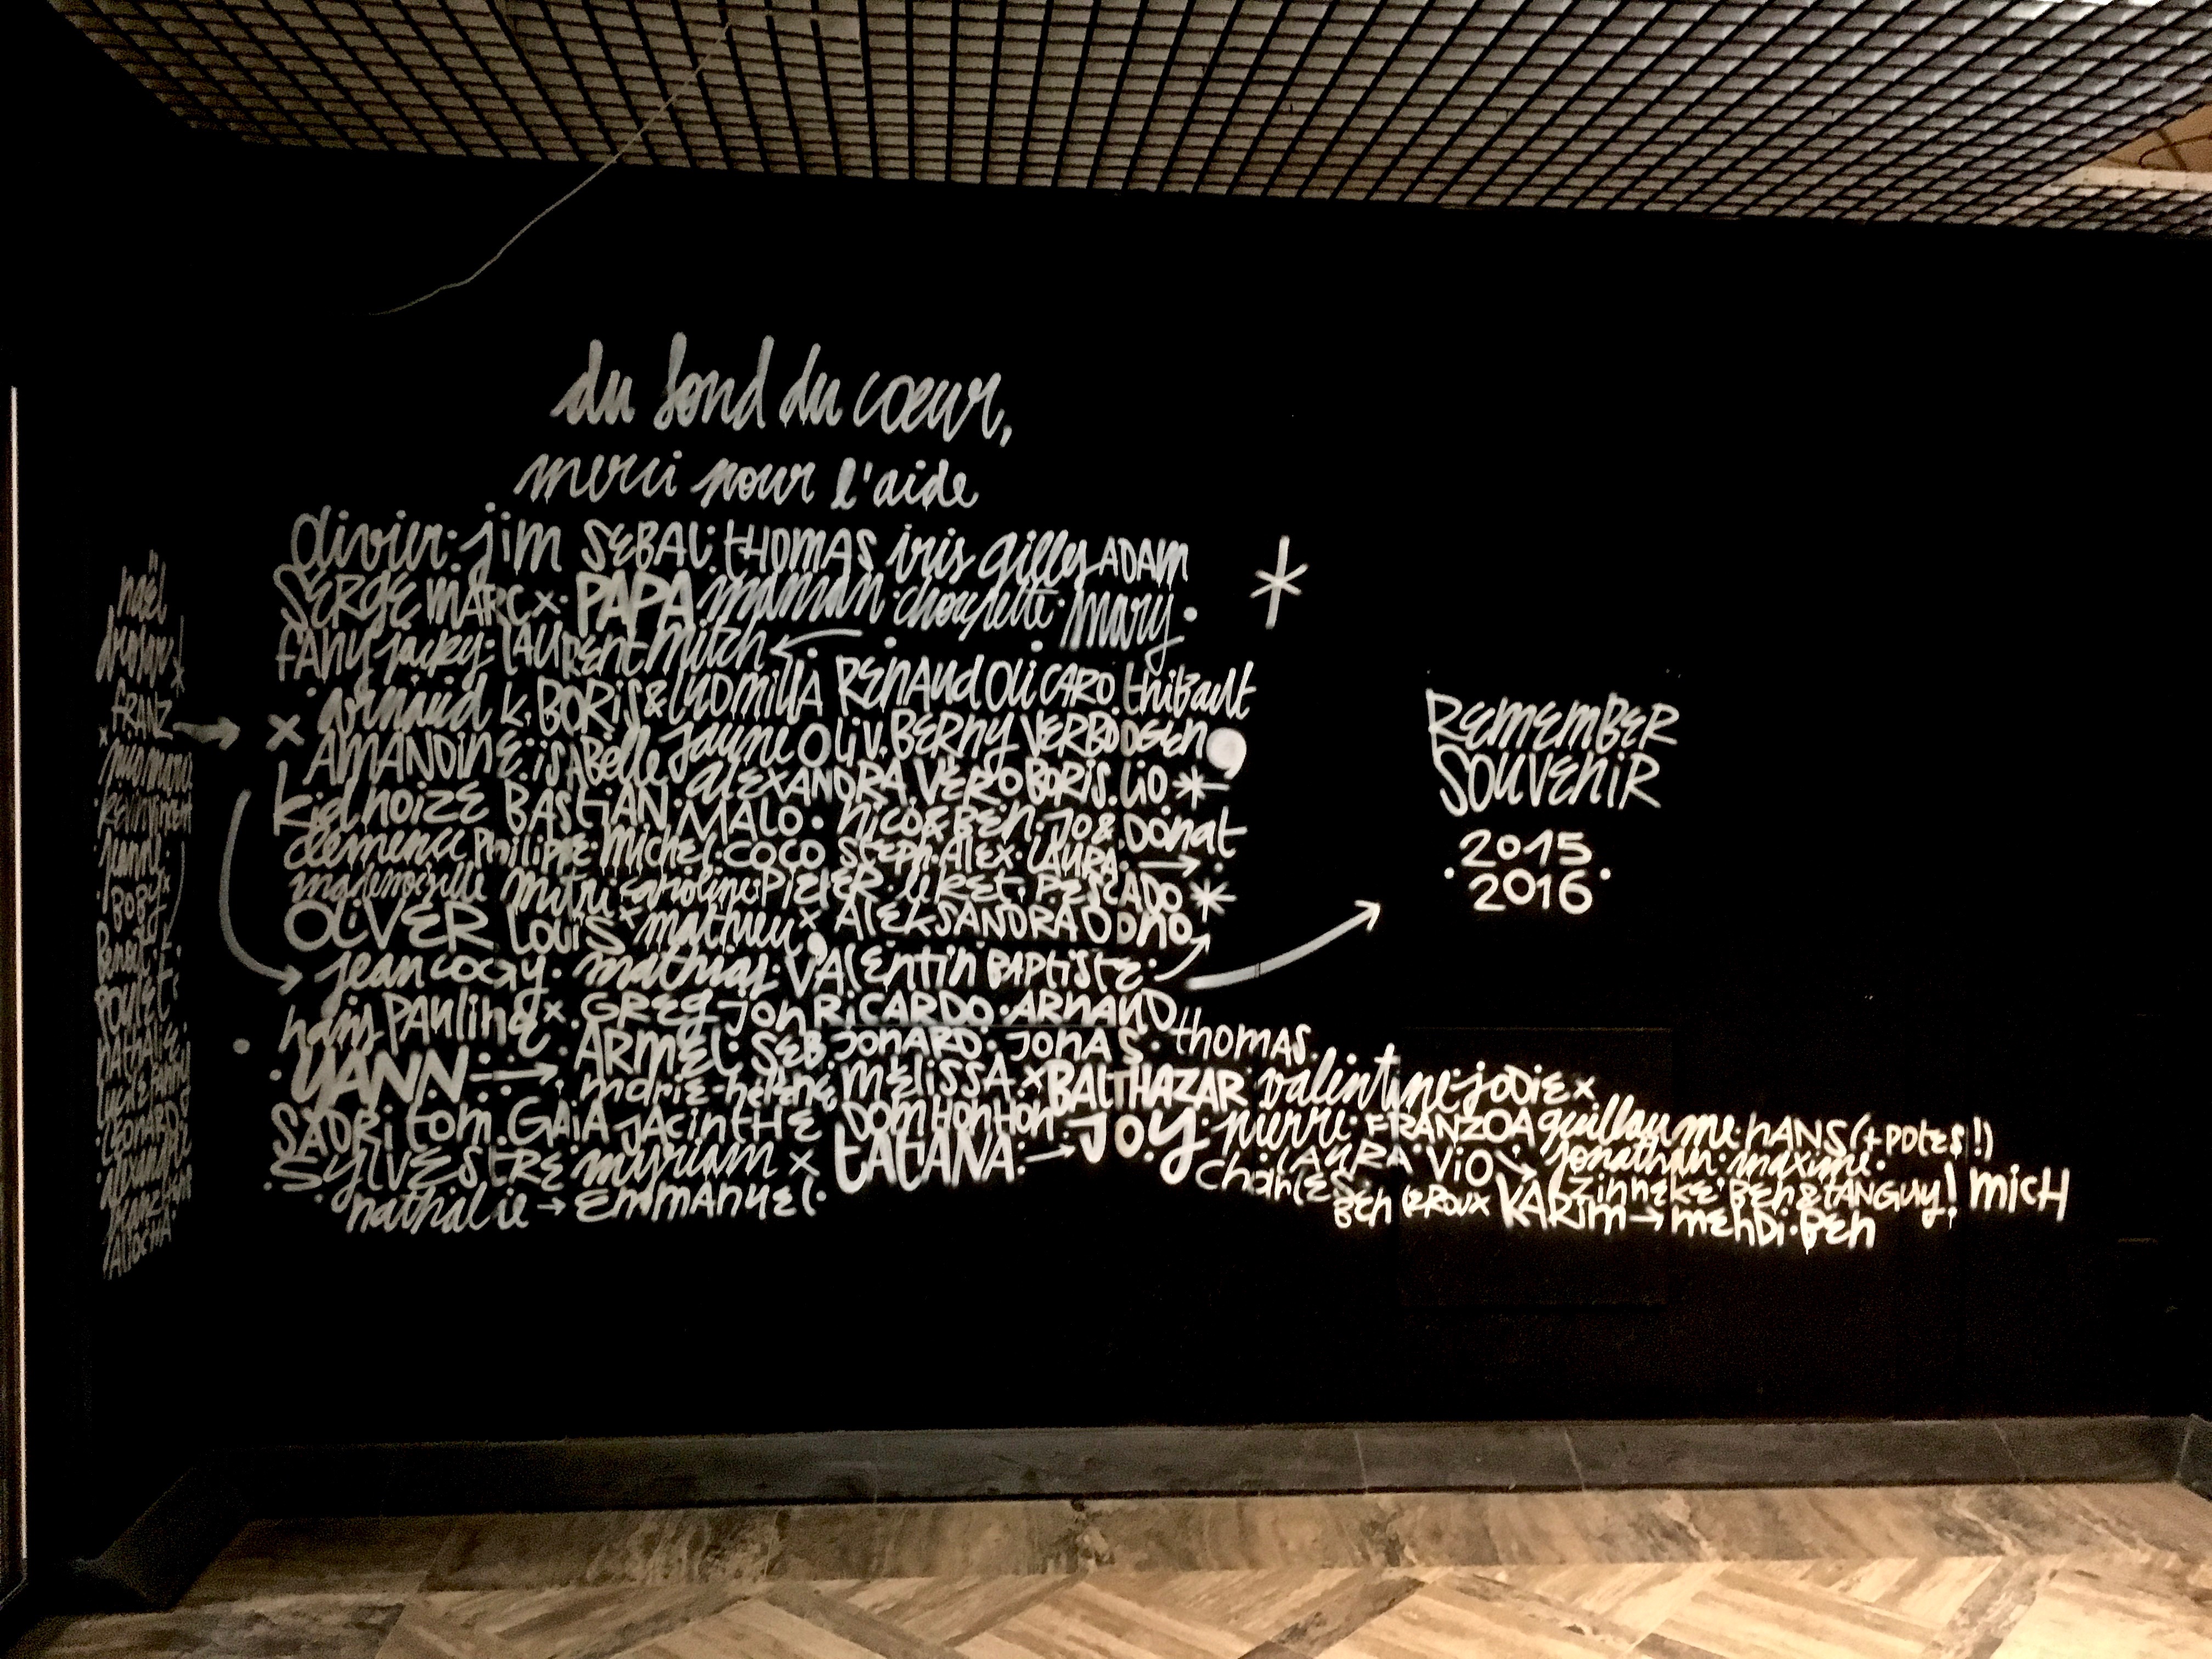 du fond du cœur,
merci pour l'aide
olivier. jim SEBAL. tHOMAS iris gilles ADAM
SERGE MARC x. PAPA maman choupette. mary.
FANY jacky. LAURENT mitch
x arnaud k. BORIS & LUDMILLA RENAUD OLI CARO. thibault
AMANDINE. iSABelle Jaune Oliv. BERNY VERBO
kid noize BASTIAN. aLEXANDRA VERO BORIS. LIO *
clemence PHILIPPE. Michel. MALO. nico & BEN. JO & Donat
mademoiselle mitri COCO STEPH. ALEX. LAURA.
caroline. PIETER. PESCADO *
OLIVER Louis x mathieu x ALEKSANDRA ODNO
jean. mathias. VALENTIN BAPTISTE.
hans PAULINE x. GREG JON RICARDO. ARNAUD thomas.
YANN ARMEL. SEB JONARD. JONAS.
marie-helene MELISSA. x BALTHAZAR valentine. jodie x
SADRI tom. GAIA JACINTHE DOM HON HON
SYLVESTRE myriam x tATANA. JOY pierre. FRANZOA guillaume. hANS (+ POTES!)
nathalie EMMANUEL. CHARLES LAURA VIO jonathan. maxime.
BEN LEROUX KARIM Zinneke BEN & tANGUY! MICH
MEHDI. BEN
REMEMBER
SOUVENIR
2015
2016
noel
FRANZ
BOBY
Benoit
POULET.
NATHALIE.
LEONARD